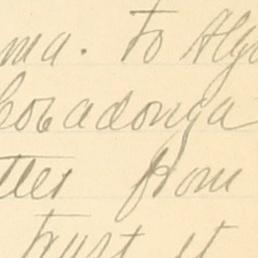 ma. To Alg
Cobadonga
tter from
trust it